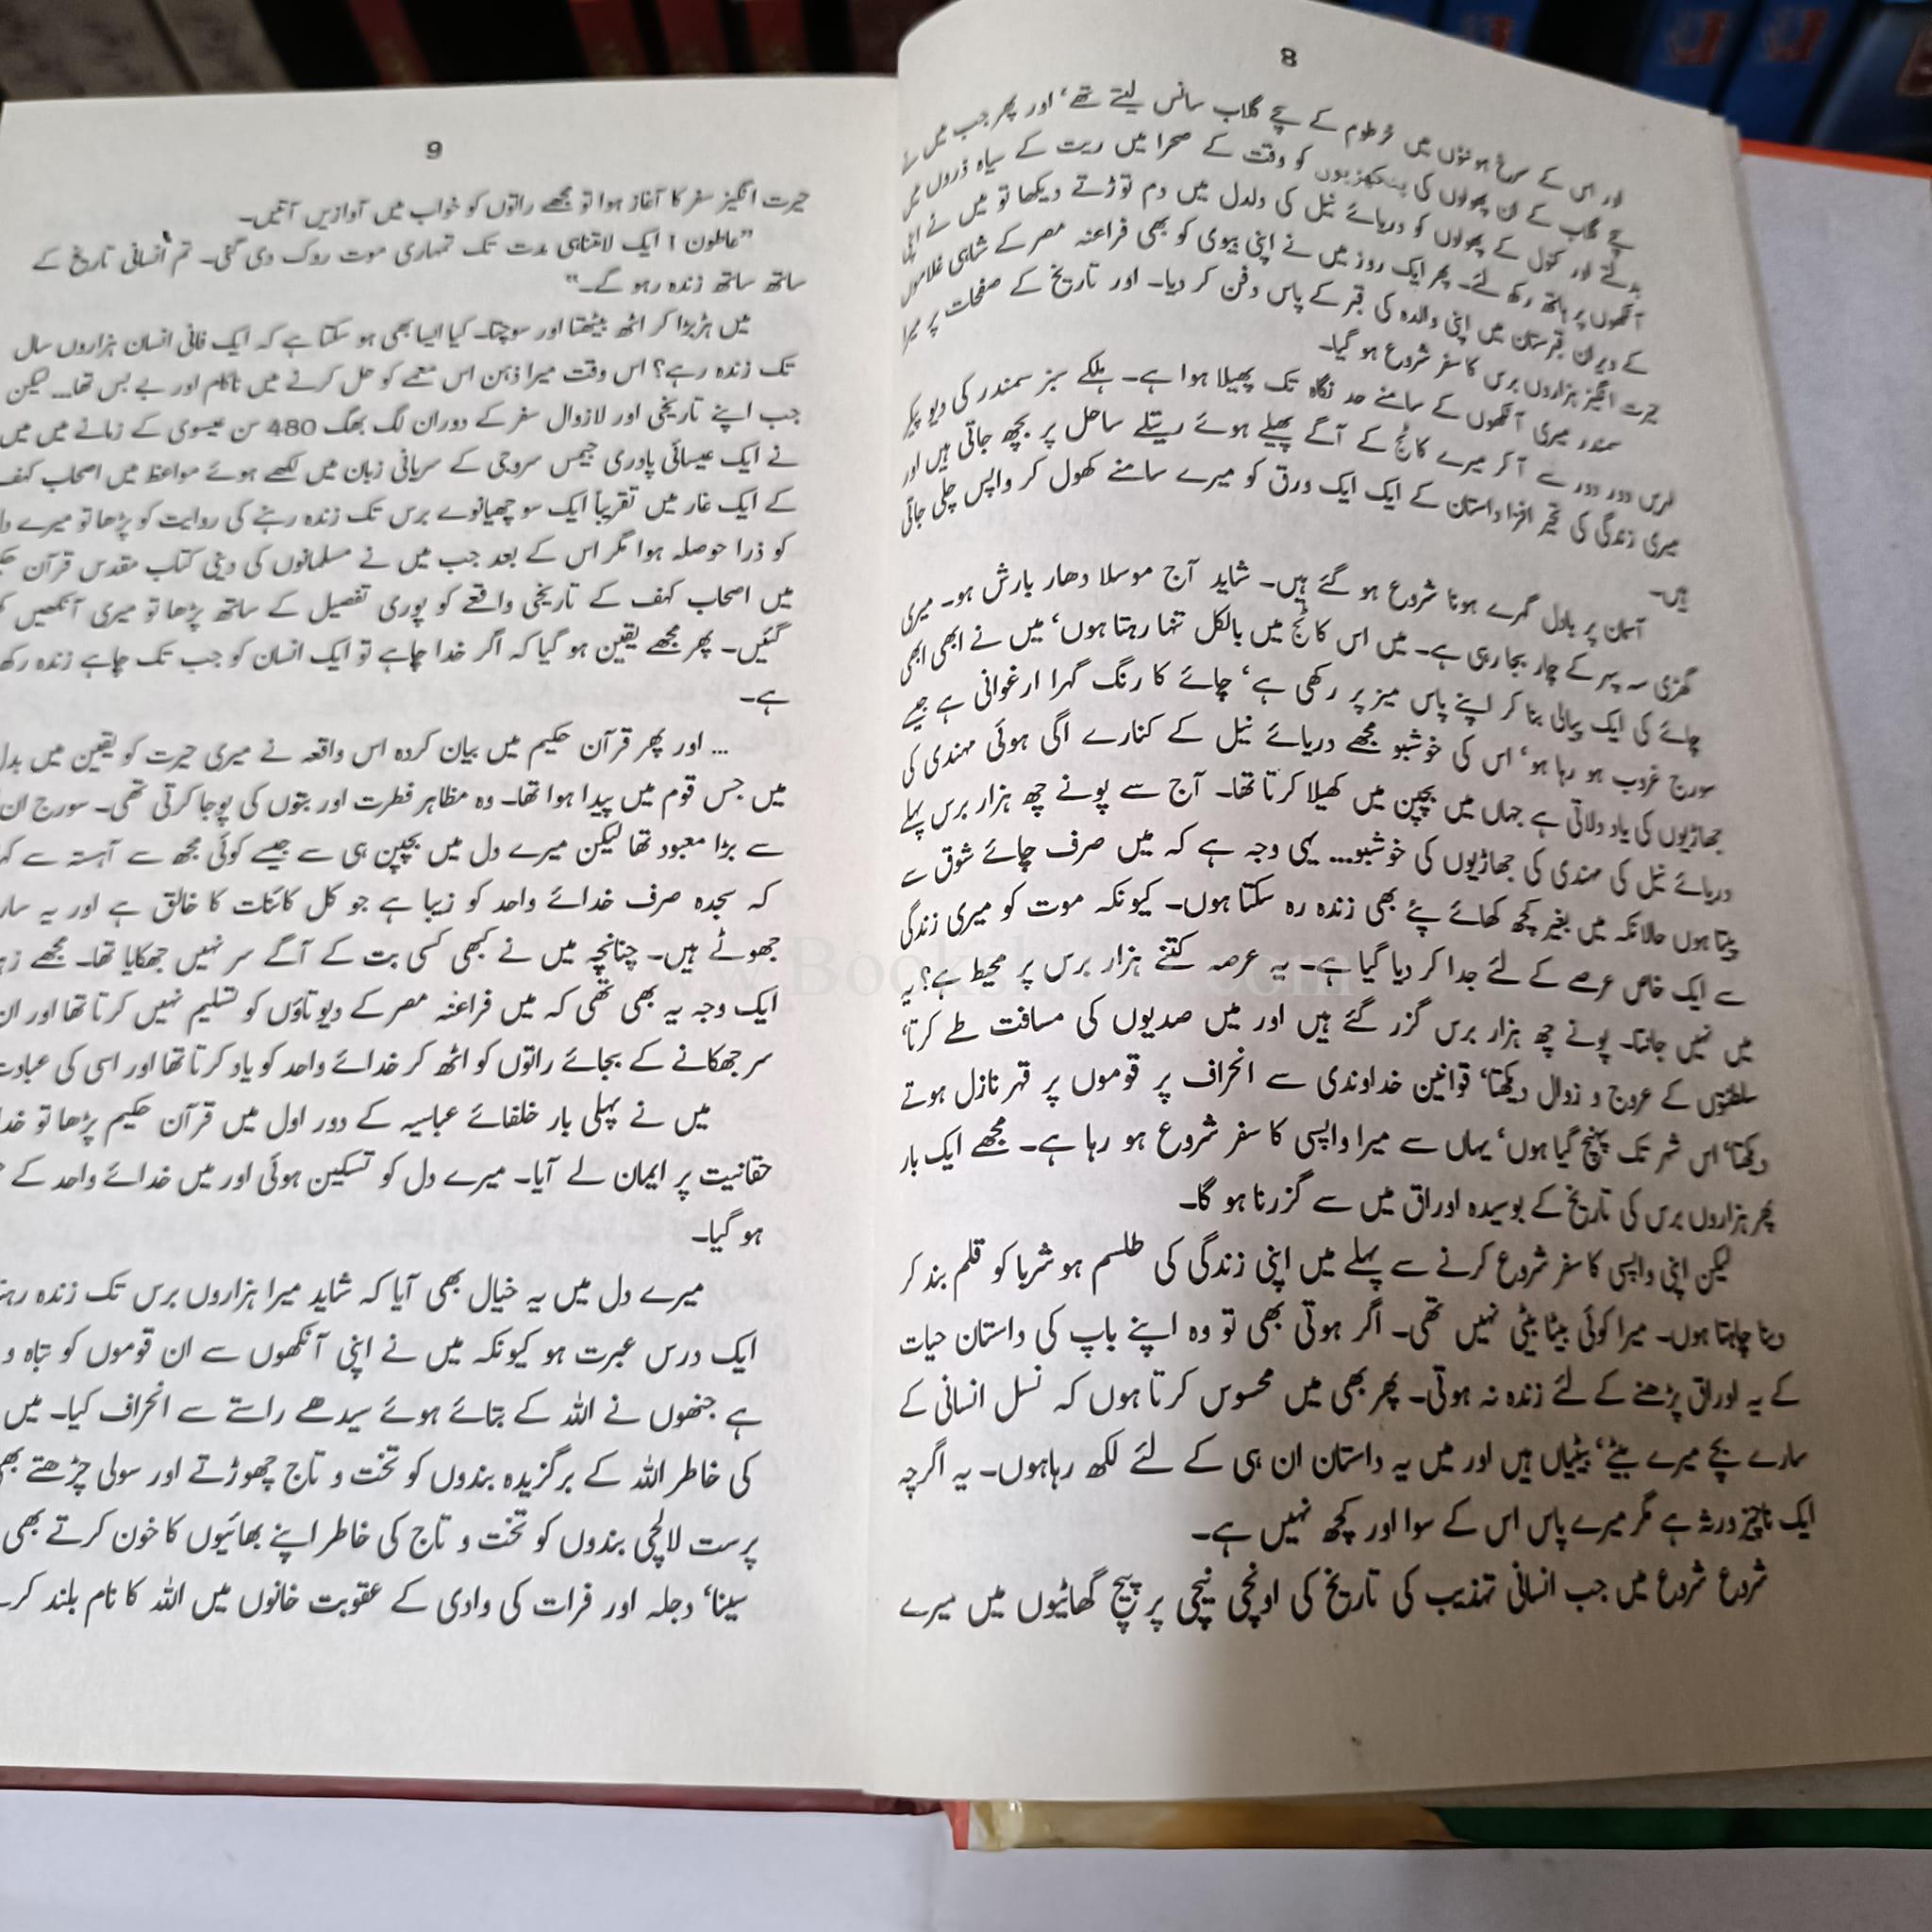 8
اور اس کے سرخ ہونٹوں میں خرطوم کے سچے گلاب سانس لیتے تھے‘ اور پھر جب میں نے
سچے گلاب کے ان پھولوں کی پنکھڑیوں کو وقت کے صحرا میں ریت کے سیاہ ذروں میں
بدلتے اور کنول کے پھولوں کو دریائے نیل کی دلدل میں دم توڑتے دیکھا تو میں نے اپنی
آنکھوں پر ہاتھ رکھ لئے۔ پھر ایک روز میں نے اپنی بیوی کو بھی فراعنہ مصر کے شاہی غلاموں
کے ویران قبرستان میں اپنی والدہ کی قبر کے پاس دفن کر دیا۔ اور تاریخ کے صفحات پر میرا
حیرت انگیز ہزاروں برس کا سفر شروع ہو گیا۔
سمندر میری آنکھوں کے سامنے حد نگاہ تک پھیلا ہوا ہے۔ ہلکے سبز سمندر کی دیو پیکر
لہریں دور دور سے آ کر میرے کاٹج کے آگے پھیلے ہوئے ریتلے ساحل پر بچھ جاتی ہیں اور
میری زندگی کی تحیر افزا داستان کے ایک ایک ورق کو میرے سامنے کھول کر واپس چلی جاتی
ہیں۔
آسمان پر بادل گہرے ہونا شروع ہو گئے ہیں۔ شاید آج موسلا دھار بارش ہو۔ میری
گھڑی سہ پہر کے چار بجا رہی ہے۔ میں اس کاٹج میں بالکل تنہا رہتا ہوں‘ میں نے ابھی ابھی
چائے کی ایک پیالی بنا کر اپنے پاس میز پر رکھی ہے‘ چائے کا رنگ گہرا ارغوانی ہے جیسے
سورج غروب ہو رہا ہو‘ اس کی خوشبو مجھے دریائے نیل کے کنارے اگی ہوئی مہندی کی
جھاڑیوں کی یاد دلاتی ہے جہاں میں بچپن میں کھیلا کرتا تھا۔ آج سے پونے چھ ہزار برس پہلے
دریائے نیل کی مہندی کی جھاڑیوں کی خوشبو... یہی وجہ ہے کہ میں صرف چائے شوق سے
پیتا ہوں حالانکہ میں بغیر کچھ کھائے پئے بھی زندہ رہ سکتا ہوں۔ کیونکہ موت کو میری زندگی
سے ایک خاص عرصے کے لئے جدا کر دیا گیا ہے۔ یہ عرصہ کتنے ہزار برس پر محیط ہے؟ یہ
میں نہیں جانتا۔ پونے چھ ہزار برس گزر گئے ہیں اور میں صدیوں کی مسافت طے کرتا‘
سلطنتوں کے عروج و زوال دیکھتا‘ قوانین خداوندی سے انحراف پر قوموں پر قہر نازل ہوتے
دیکھتا‘ اس شہر تک پہنچ گیا ہوں‘ یہاں سے میرا واپسی کا سفر شروع ہو رہا ہے۔ مجھے ایک بار
پھر ہزاروں برس کی تاریخ کے بوسیدہ اوراق میں سے گزرنا ہو گا۔
لیکن اپنی واپسی کا سفر شروع کرنے سے پہلے میں اپنی زندگی کی طلسم ہوشربا کو قلم بند کر
دینا چاہتا ہوں۔ میرا کوئی بیٹا بیٹی نہیں تھی۔ اگر ہوتی بھی تو وہ اپنے باپ کی داستان حیات
کے یہ اوراق پڑھنے کے لئے زندہ نہ ہوتی۔ پھر بھی میں محسوس کرتا ہوں کہ نسل انسانی کے
سارے بچے میرے بیٹے‘ بیٹیاں ہیں اور میں یہ داستان ان ہی کے لئے لکھ رہا ہوں۔ یہ اگرچہ
ایک ناچیز ورثہ ہے مگر میرے پاس اس کے سوا اور کچھ نہیں ہے۔
شروع شروع میں جب انسانی تہذیب کی تاریخ کی اونچی نیچی پر پیچ گھاٹیوں میں میرے
9
حیرت انگیز سفر کا آغاز ہوا تو مجھے راتوں کو خواب میں آوازیں آتیں۔
”عاطون ! ایک لامتناہی مدت تک تمہاری موت روک دی گئی۔ تم انسانی تاریخ کے
ساتھ ساتھ زندہ رہو گے۔“
میں ہڑبڑا کر اٹھ بیٹھتا اور سوچتا۔ کیا ایسا بھی ہو سکتا ہے کہ ایک فانی انسان ہزاروں سال
تک زندہ رہے؟ اس وقت میرا ذہن اس معمے کو حل کرنے میں ناکام اور بے بس تھا... لیکن
جب اپنے تاریخی اور لازوال سفر کے دوران لگ بھگ 480 سن عیسوی کے زمانے میں میں
نے ایک عیسائی پادری جیمس سروجی کے سریانی زبان میں لکھے ہوئے مواعظ میں اصحاب کہف
کے ایک غار میں تقریباً ایک سو چھیانوے برس تک زندہ رہنے کی روایت کو پڑھا تو میرے
کو ذرا حوصلہ ہوا مگر اس کے بعد جب میں نے مسلمانوں کی دینی کتاب مقدس قرآن
میں اصحاب کہف کے تاریخی واقعے کو پوری تفصیل کے ساتھ پڑھا تو میری آنکھیں
گئیں۔ پھر مجھے یقین ہو گیا کہ اگر خدا چاہے تو ایک انسان کو جب تک چاہے زندہ رکھ
ہے۔
... اور پھر قرآن حکیم میں بیان کردہ اس واقعہ نے میری حیرت کو یقین میں بدل
میں جس قوم میں پیدا ہوا تھا۔ وہ مظاہر فطرت اور بتوں کی پوجا کرتی تھی۔ سورج ان
سے بڑا معبود تھا لیکن میرے دل میں بچپن ہی سے جیسے کوئی مجھ سے آہستہ سے
کہ سجدہ صرف خدائے واحد کو زیبا ہے جو کل کائنات کا خالق ہے اور یہ
جھوٹے ہیں۔ چنانچہ میں نے کبھی کسی بت کے آگے سر نہیں جھکایا تھا۔ مجھے
ایک وجہ یہ بھی تھی کہ میں فراعنہ مصر کے دیوتاؤں کو تسلیم نہیں کرتا تھا اور ان
سر جھکانے کے بجائے راتوں کو اٹھ کر خدائے واحد کو یاد کرتا تھا اور اسی کی عبادت
میں نے پہلی بار خلفائے عباسیہ کے دور اول میں قرآن حکیم پڑھا تو خدا
حقانیت پر ایمان لے آیا۔ میرے دل کو تسکین ہوئی اور میں خدائے واحد کے
ہو گیا۔
میرے دل میں یہ خیال بھی آیا کہ شاید میرا ہزاروں برس تک زندہ
ایک درس عبرت ہو کیونکہ میں نے اپنی آنکھوں سے ان قوموں کو تباہ و
ہے جنھوں نے اللہ کے بتائے ہوئے سیدھے راستے سے انحراف کیا۔ میں
کی خاطر اللہ کے برگزیدہ بندوں کو تخت و تاج چھوڑتے اور سولی چڑھتے
پرست لالچی بندوں کو تخت و تاج کی خاطر اپنے بھائیوں کا خون کرتے بھی
سینا‘ دجلہ اور فرات کی وادی کے عقوبت خانوں میں اللہ کا نام بلند